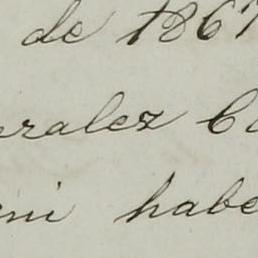 de 1867
ralez C
ni habe